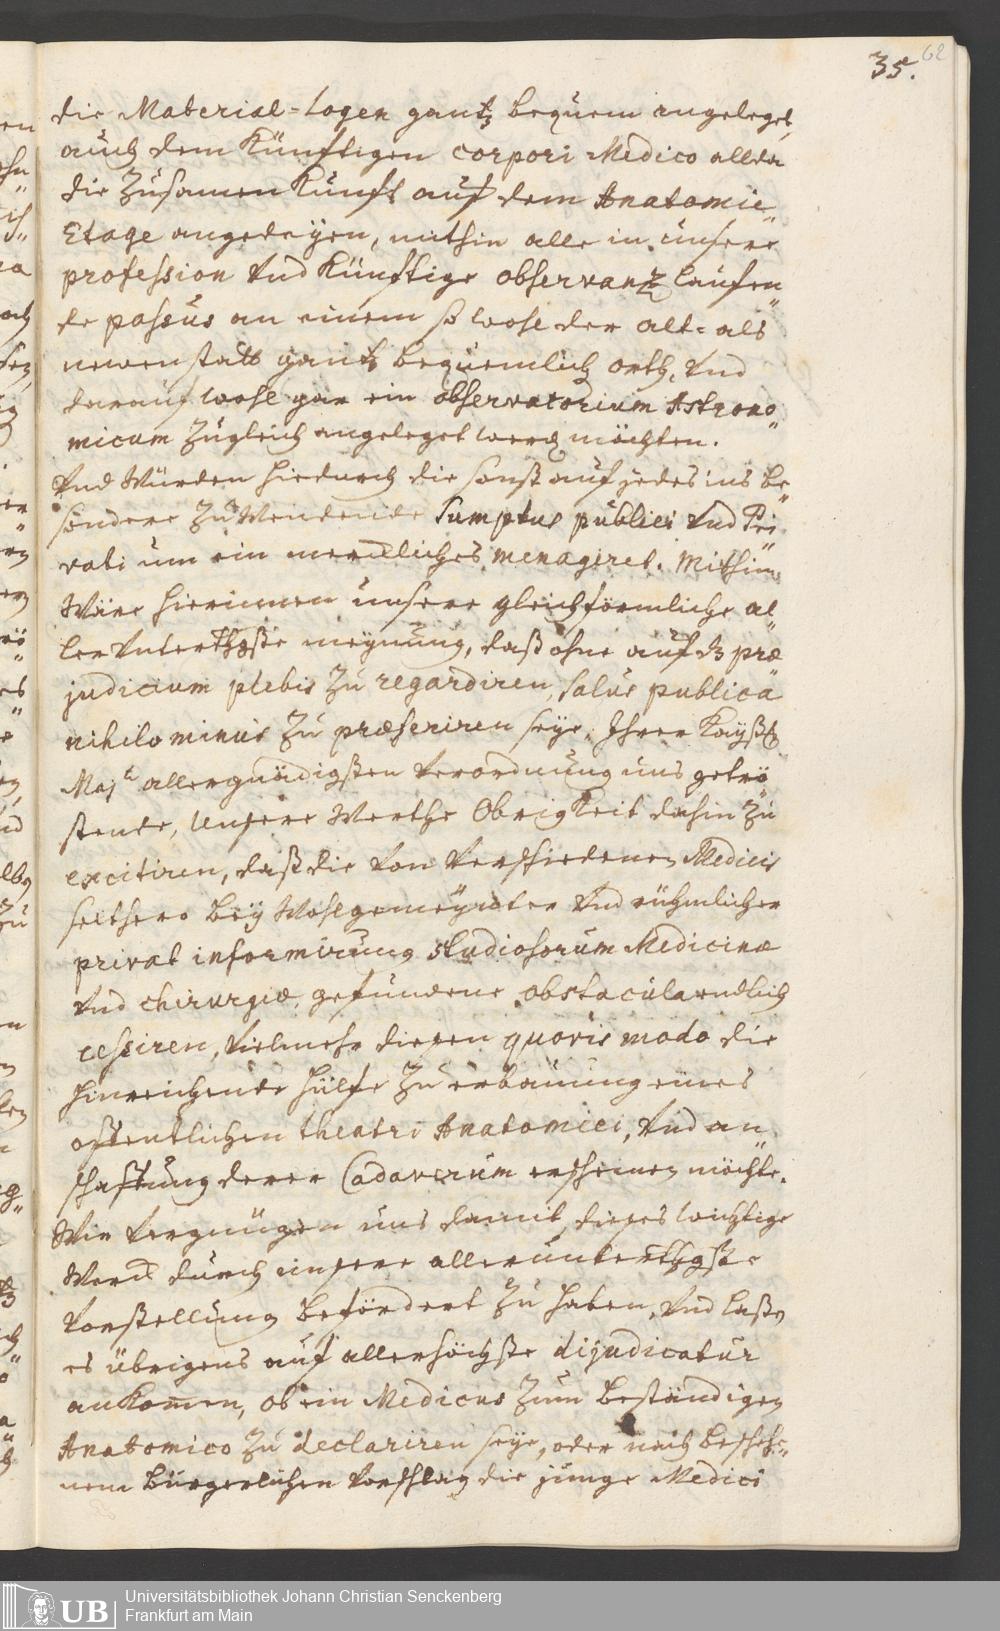 35.
62
die Material-Logen gantz bequem angeleget,
auch dem Künfftigen corpori Medico allda
die Zusamen Kunft auf dem Anatomie„
Etage angedeyen, mithin alle in unsere
profession Vnd Künfftige observantz laufen„
de passus an einem so wohl der alt- als
newenstatt gantz bequemlich orth, Vnd
darauf wohl gar ein observatorium Astrono„
micum Zugleich angeleget werd möchten.
Vnd Würden hiedurch die sonst auf jedes ins be„
sondere Zu Wendende Sumptus publici Vnd Pri„
vati um ein merckliches menagiret. Mithin
Wäre hierinnen unsere gleichförmliche al„
lerVnterthgste meynung, daß ohne auf dz præ
judicium plebis Zu regardiren, salus publica
nihilominus Zu præferiren seye, Ihrer Kayßl
Maj.t allergnädigsten Verordnung uns getrö„
stende, Unsere Werthe Obrigkeit dahin Zu
excitiren, daß die Von Verschiedenen Medicis
seithero bey Wohlgemeynter Vnd rühmlicher
privat informirung studiosorum Medicinæ
Vnd chirurgiæ, gefundene obstacula endlich
cessiren, Vielmehr diesen quovis modo die
hinreichende Hülfe Zu erbauung eines
offentlichen theatri Anatomici, Vnd an„
schaffung derer Cadaverum erscheinen möchte.
Wir Vergnügen uns damit, dieses wichtige
Werck durch unsere allerunterthgste
Vorstellung befördert Zu haben, Vnd laßen
es übrigens auf allerhöchste dijudicatur
ankomen, ob ein Medicus Zum beständigen
Anatomico Zu declariren seye, oder nach beschehe„
nem bürgerlichen Vorschlag die junge Medici
UB
Universitätsbibliothek Johann Christian Senckenberg
Frankfurt am Main